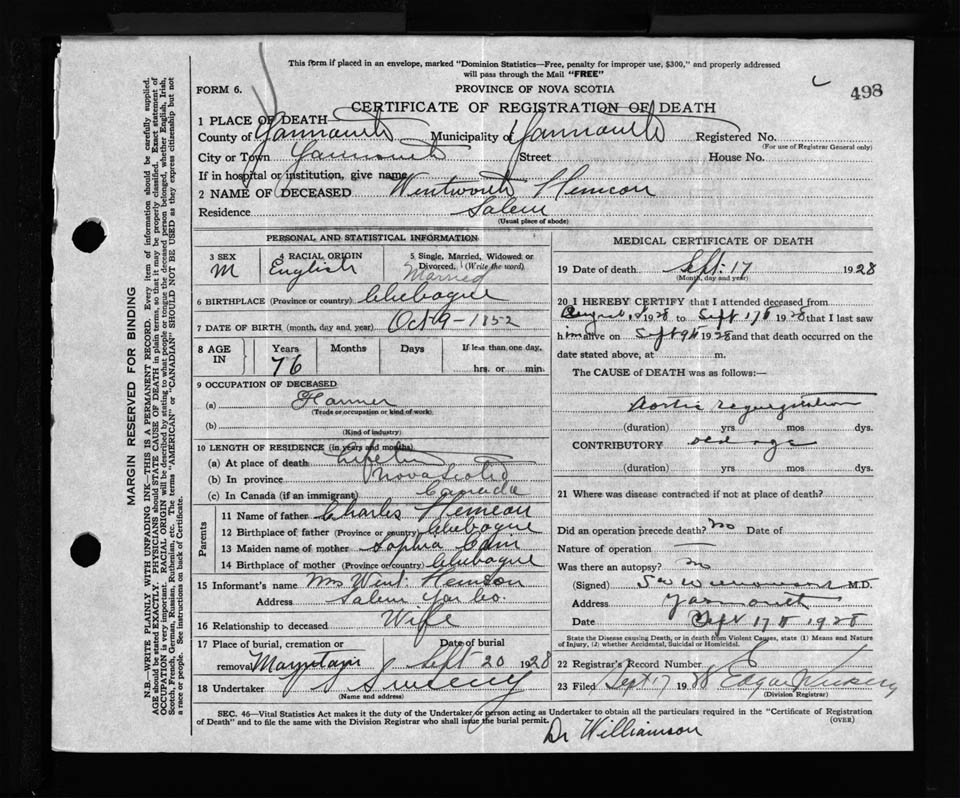 This form if placed in an envelope, marked "Dominion Statistics—Free, penalty for improper use, $300," and properly addressed
will pass through the Mail "FREE"
FORM 6.
PROVINCE OF NOVA SCOTIA
498
CERTIFICATE OF REGISTRATION OF DEATH
1 PLACE OF DEATH
County of Yarmouth Municipality of Yarmouth Registered No.
(For use of Registrar General only)
City or Town Yarmouth Street House No.
If in hospital or institution, give name
2 NAME OF DECEASED Wentworth Hemeon
Residence Salem
(Usual place of abode)
PERSONAL AND STATISTICAL INFORMATION
3 SEX M
4 RACIAL ORIGIN English
5 Single, Married, Widowed or Divorced, (Write the word) Married
6 BIRTHPLACE (Province or country) Chebogue
7 DATE OF BIRTH (month, day and year) Oct 9 - 1852
8 AGE IN Years 76 Months Days If less than one day, hrs. or min.
9 OCCUPATION OF DECEASED
(a) Farmer
(Trade or occupation or kind of work)
(b)
(Kind of industry)
10 LENGTH OF RESIDENCE (in years and months)
(a) At place of death Lifetime
(b) In province Nova Scotia
(c) In Canada (if an immigrant) Canada
Parents
11 Name of father Charles Hemeon
12 Birthplace of father (Province or country) Chebogue
13 Maiden name of mother Sophia
14 Birthplace of mother (Province or country) Chebogue
15 Informant's name Mrs Went. Hemeon
Address Salem Yar Co.
16 Relationship to deceased Wife
17 Place of burial, cremation or removal Mountain Date of burial Sept 20 1928
18 Undertaker Sweeny
(Name and address)
MEDICAL CERTIFICATE OF DEATH
19 Date of death Sept. 17 1928
(Month, day and year)
20 I HEREBY CERTIFY that I attended deceased from
August 1928 to Sept 17th 1928 that I last saw
him alive on Sept 9th 1928 and that death occurred on the
date stated above, at m.
The CAUSE of DEATH was as follows:—
Aortic regurgitation
(duration) yrs mos dys.
CONTRIBUTORY Old age
(duration) yrs mos dys.
21 Where was disease contracted if not at place of death?
Did an operation precede death? No Date of
Nature of operation —
Was there an autopsy? No
(Signed) S W Williamson M.D.
Address Yarmouth
Date Sept 17th 1928
State the Disease causing Death, or in death from Violent Causes, state (1) Means and Nature
of Injury, (2) whether Accidental, Suicidal or Homicidal.
22 Registrar's Record Number
23 Filed Sept 17 1928 Edgar
(Division Registrar)
SEC. 46—Vital Statistics Act makes it the duty of the Undertaker or person acting as Undertaker to obtain all the particulars required in the "Certificate of Registration
of Death" and to file the same with the Division Registrar who shall issue the burial permit. (OVER)
Dr Williamson
MARGIN RESERVED FOR BINDING
N.B.—WRITE PLAINLY WITH UNFADING INK—THIS IS A PERMANENT RECORD. Every item of information should be carefully supplied.
AGE should be stated EXACTLY. PHYSICIANS should STATE CAUSE OF DEATH in plain terms, so that it may be properly classified. Exact statement of
OCCUPATION is very important. RACIAL ORIGIN will be described by stating to what people or tongue the deceased person belonged, whether English, Irish,
Scotch, French, German, Russian, Ruthenian, etc. The terms "AMERICAN" or "CANADIAN" SHOULD NOT BE USED as they express citizenship but not
a race or people. See instructions on back of Certificate.